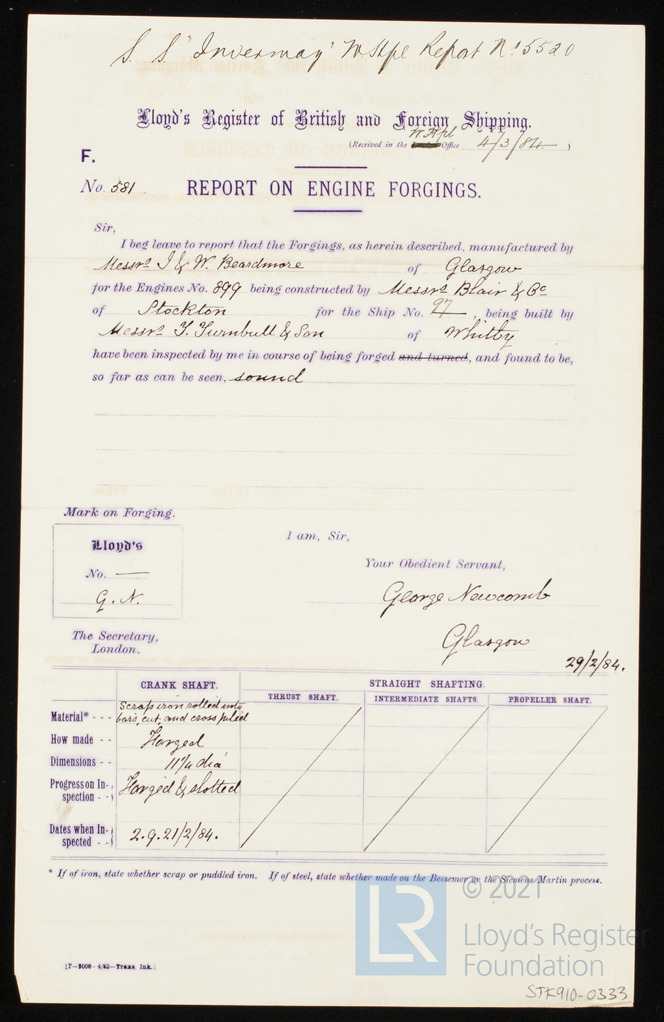 S. S. "Invermay" W Htpl Report No. 5520
Lloyd's Register of British and Foreign Shipping.
W. Htpl
(Received in the London Office 4/3/84 )
F.
No. 581
REPORT ON ENGINE FORGINGS.
Sir,
I beg leave to report that the Forgings, as herein described, manufactured by
Messrs. I & W. Beardmore of Glasgow
for the Engines No. 899 being constructed by Messrs Blair & Co
of Stockton for the Ship No. 97, being built by
Messrs T. Turnbull & Son of Whitby
have been inspected by me in course of being forged and turned, and found to be,
so far as can be seen, sound
Mark on Forging.
Lloyd's
No. —
G. N.
I am, Sir,
Your Obedient Servant,
George Newcomb
Glasgow
29/2/84.
The Secretary,
London.
CRANK SHAFT. STRAIGHT SHAFTING.
THRUST SHAFT. INTERMEDIATE SHAFTS. PROPELLER SHAFT.
Material* - - - Scrap iron rolled into
bars, cut, and cross piled
How made - - Forged
Dimensions - - 11 1/4 dia
Progress on In-
spection - - Forged & slotted
Dates when In-
spected - - 2. 9. 21/2/84.
* If of iron, state whether scrap or puddled iron. If of steel, state whether made on the Bessemer or the Siemens/Martin process.
© 2021
LR
Lloyd's Register
Foundation
[T—3000—4/83—Trans. Ink.]
STK910-0333